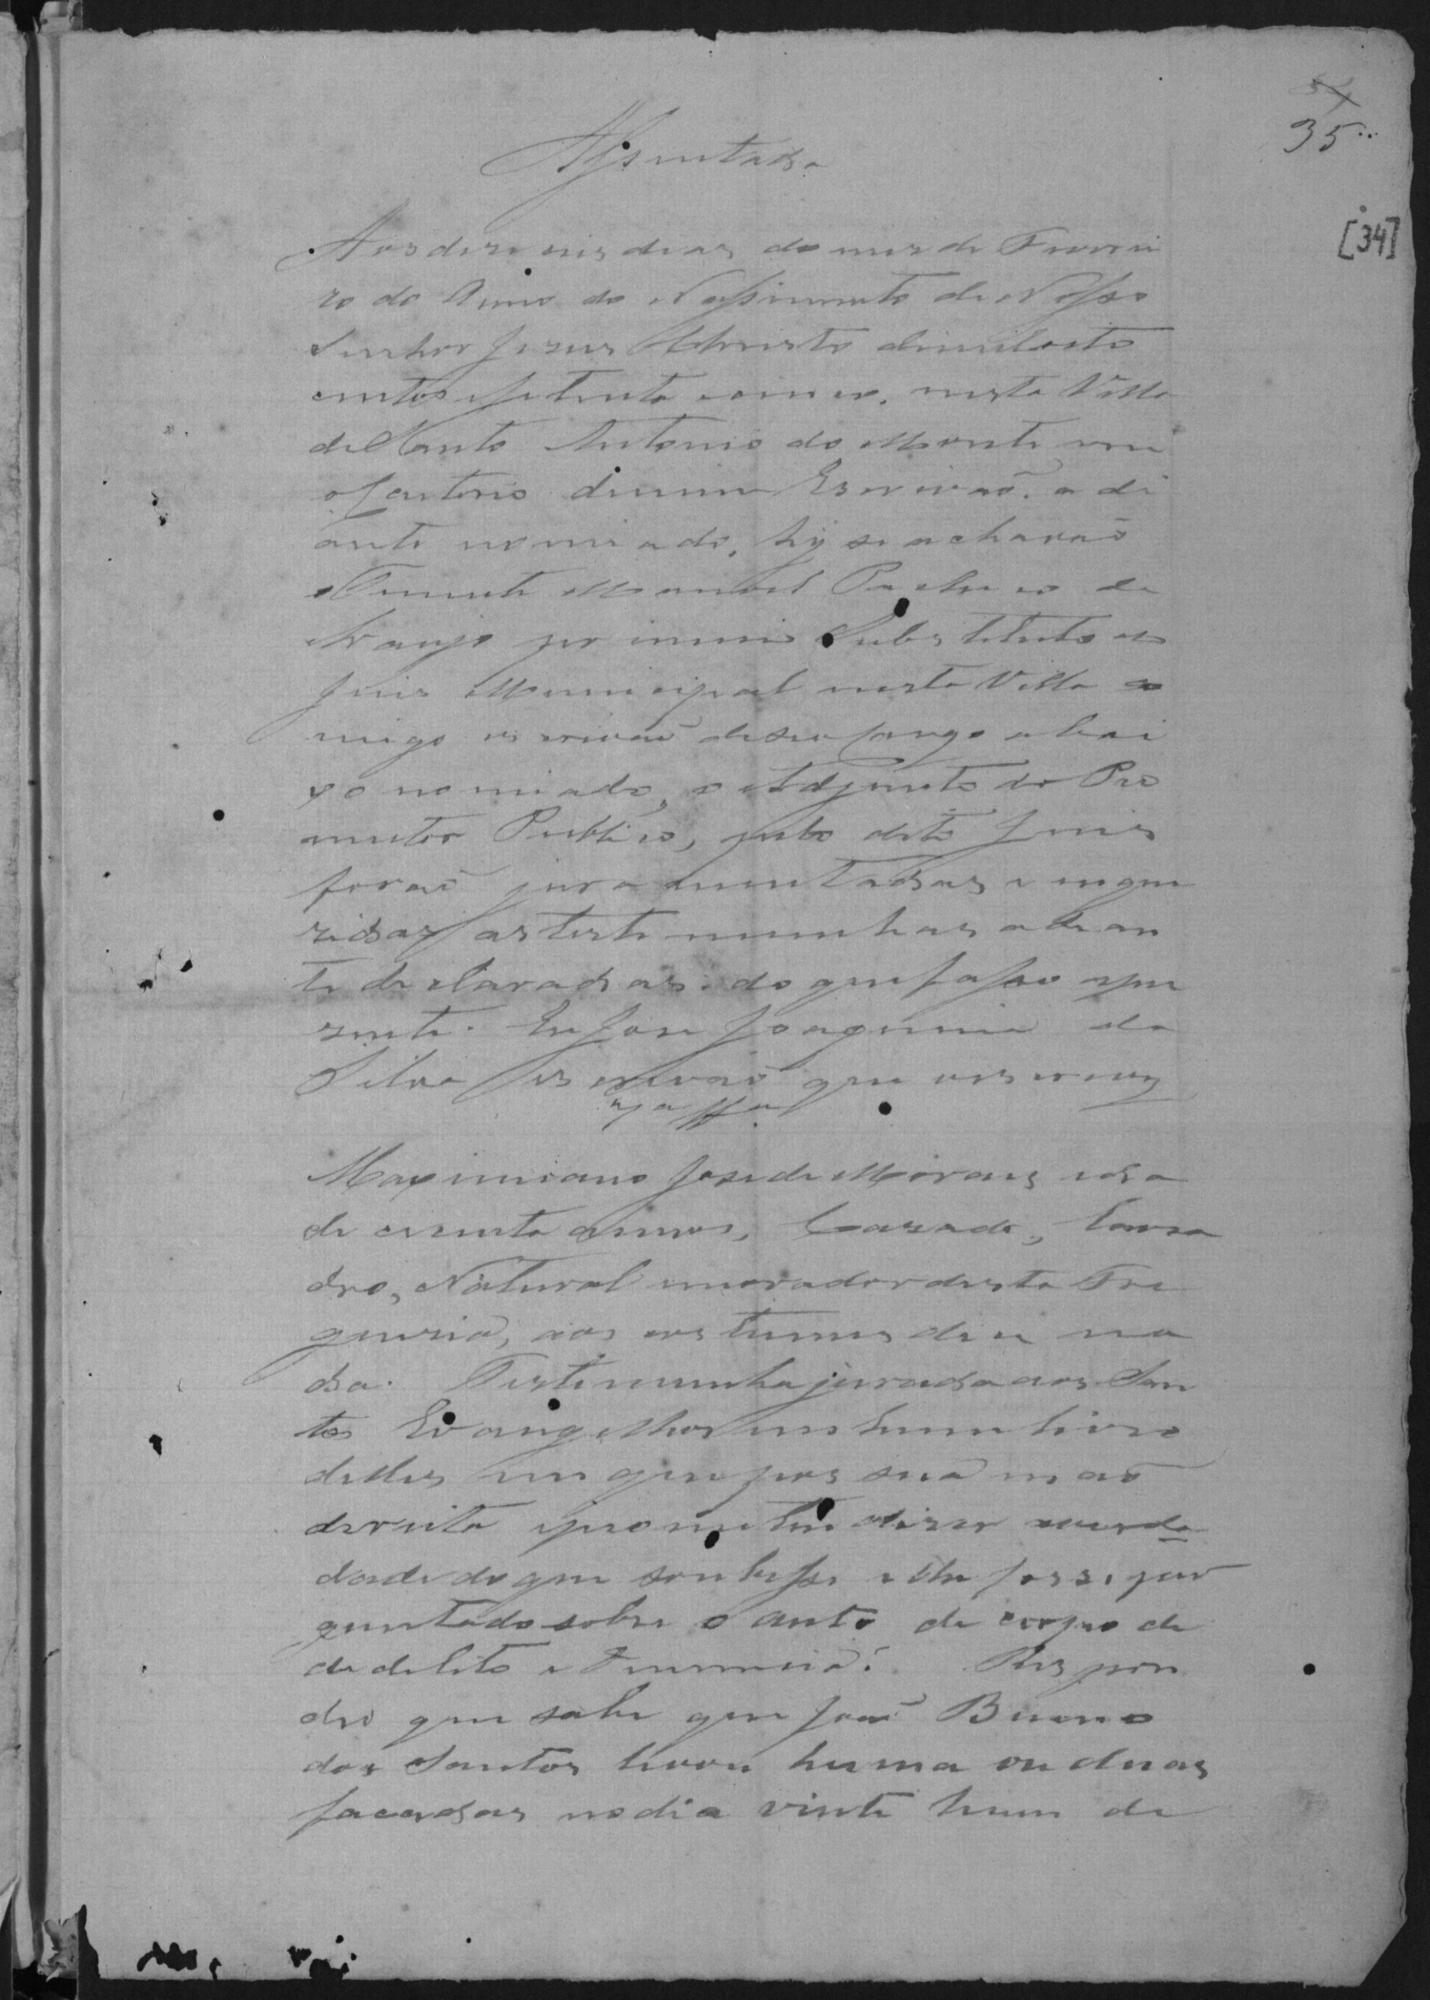 34
35
[34]
Assentada
Aos deseseis dias do mes de Feverei
ro do Anno do Nassimento de Nosso
Senhor Jesus Christo de mil oito
centos e setenta e sinco, nesta Villa
de Santo Antonio do Monte em
o Cartorio de mim Escrivaõ, a di
ante nomiado, hy se acharaõ
o Tenente Manoel Pacheco de
Araujo primeiro Substituto do
Juis Municipal nesta Villa co
migo escrivaõ de seu Cargo abai
xo nomiado, o Adjunto do Pro
mutor Publico, pelo dito Juis
foraõ juramentadas e inque
ridas as testemunhas adian
te declaradas: do que fasso a pre
zente. Eu Jose Joaquim da
Silva Escrivaõ que escrevy
Maximiano Jose de Morais idade
de cincoenta annos, Casado, Lavra
dor, Natural morador desta Fre
guezia, aos custumes dice na
da. Testemunha jurada aos San
tos Evangelhos em hum livro
delles em que pos sua maõ
dereita e prometeu dizer a verda
dade do que soubesse e lhe fosse per
guntado sobre o auto de corpo de
de delito e Denuncia: Respon
deo que sabe que Joaõ Bueno
dos Santos levou huma ou duas
facadas no dia vinte hum de